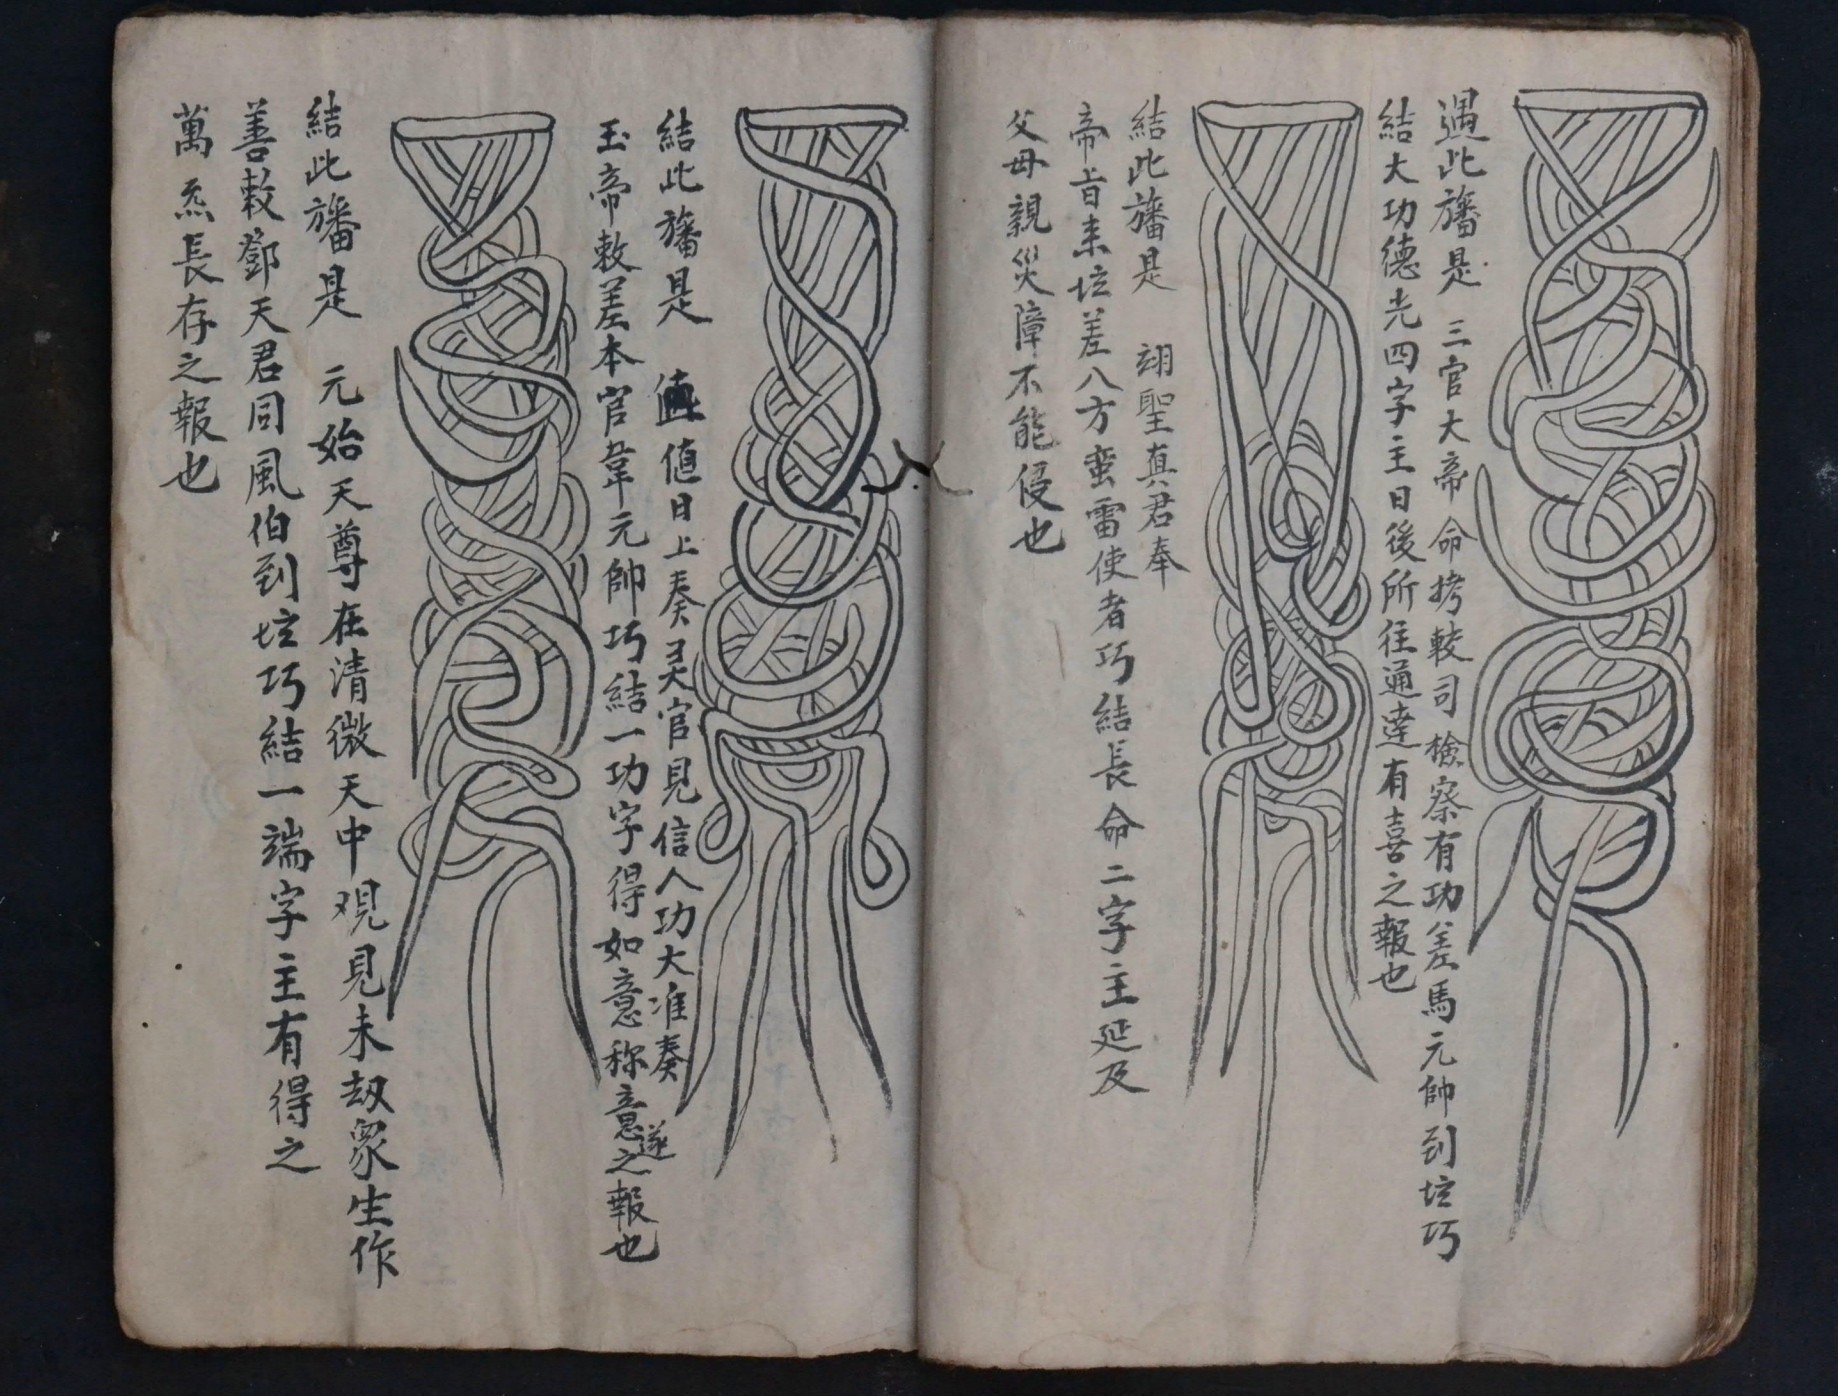 遇此旛是 三官大帝命拷較司檢察有功差馬元帥到坛巧
結大功德光四字主日後所往通達有喜之報也
結此旛是 翊聖真君奉
帝旨來坛差八方蛮雷使者巧結長命二字主延及
父母親災障不能侵也
結此旛是 值日上奏灵官見信人功大准奏
玉帝敕差本官韋元帥巧結一功字得如意称意遂之報也
結此旛是 元始天尊在清微天中观見未劫眾生作
善敕鄧天君同風伯到坛巧結一端字主有得之
萬炁長存之報也